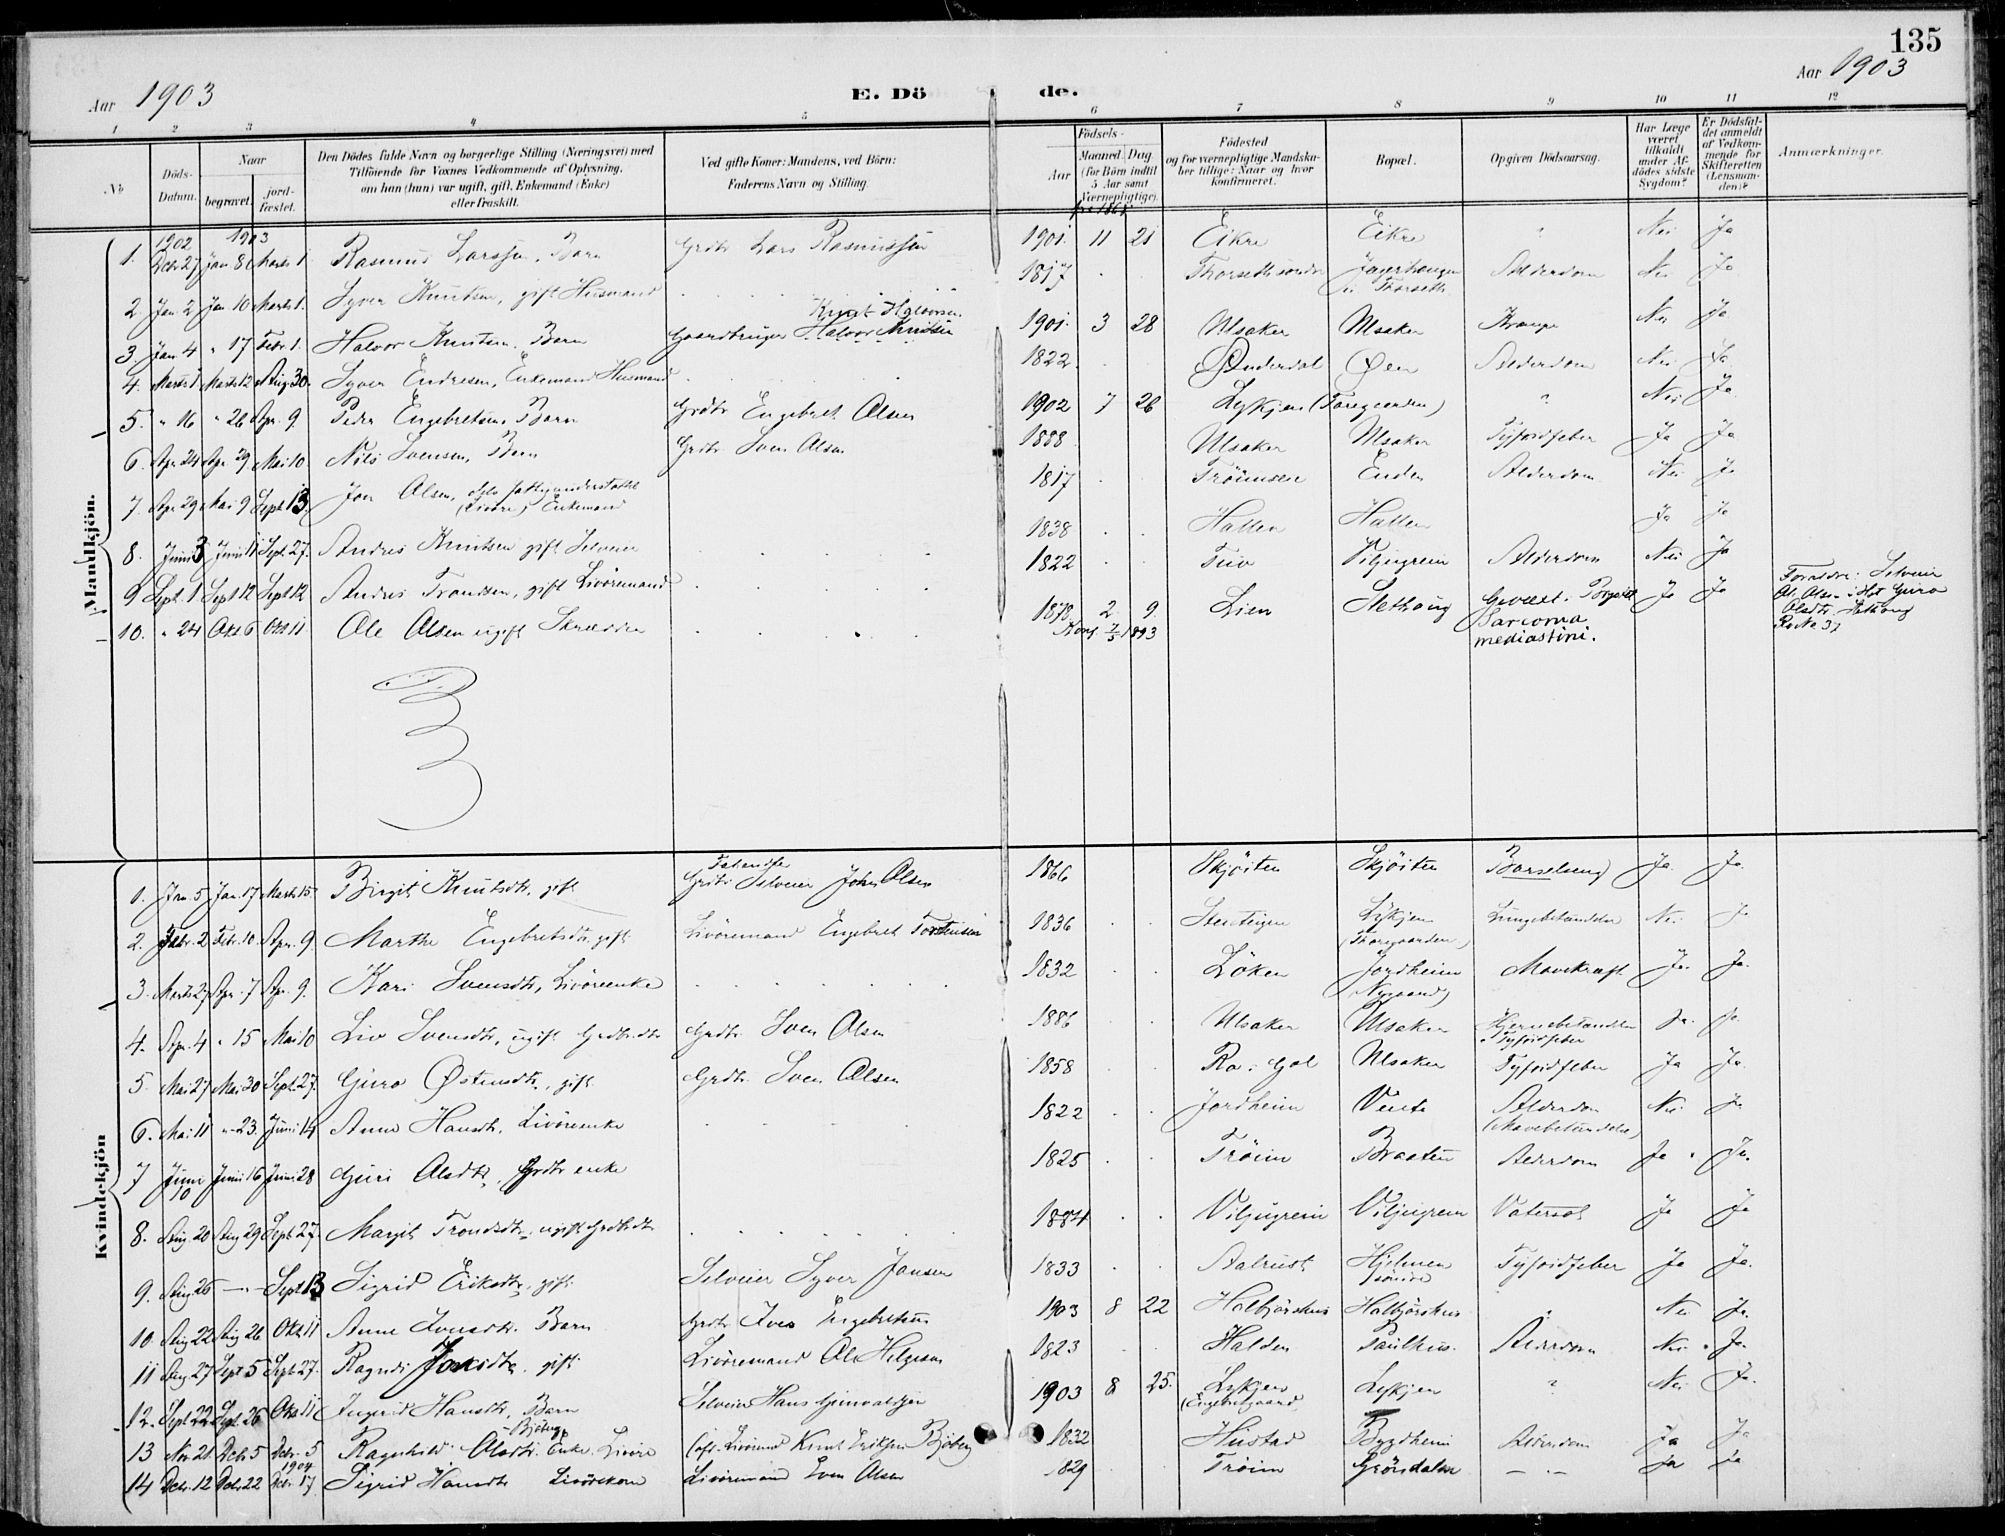 135
Aar 1903
E. Dö de.
Aar 1903
1 2 3 4 5 6 7 8 9 10 11 12
No Döds-Datum. Naar begravet. jord-fæstet. Den Dödes fulde Navn og borgerlige Stilling (Næringsvei) med Tilföiende for Voxnes Vedkommende af Oplysning, om han (hun) var ugift, gift, Enkemand (Enke) eller fraskilt. Ved gifte Koner: Mandens, ved Börn: Faderens Navn og Stilling. Födsels- Aar Maaned. Dag (for Börn indtil 5 Aar samt Værnepligtige). Födested og for værnepligtige Mandska-ber tillige: Naar og hvor konfirmeret. Bopæl. Opgiven Dödsaarsag. Har Læge været tilkaldt under Af-dödes sidste Sygdom? Er Dödsfal-det anmeldt af Vedkom-mende for Skifteretten (Lensman-den)? Anmærkninger.
Mandkjön.
1902 1903
1. Decbr 27 Jan 8 Marts 1 Rasmus Larssen, Barn Grdbr Lars Rasmussen 1901. 11 21 Eikre Eikre " Nei Ja
2. Jan 2 Jan 10 Marts 1. Syver Knutsen, gift Husmand 1817 Thorseth søndre Alderdom Nei Ja
Knut Halvorsen
3. Jan 4 " 17 Febr 1. Halvor Knutsen Barn Gaardbruger Halvor Knutsen 1901. 3 28 Ulsaker Ulsaker Nei Ja
4. Marts 1 Marts 12 Aug 30. Syver Endresen, Enkemand Husmand 1822 Øen Alderdom Nei Ja
5. " 16 " 26 Apr. 9 Peder Engebretsen Barn Grdbr Engebret Olsen 1902 7 26 Lykjen (Toregaarden) " Nei Ja
6. Apr 24 Apr 29 Mai 10 Nils Svensen, Barn Grdbr Sven Olsen 1888 Ulsaker Ulsaker Tyfoidfeber Ja Ja
7. Apr 29 Mai 9 Sept 13 Jon Olsen, (Livøre) Enkemand 1817 Trøimsen Enden Alderdom Nei Ja
8. Juni 3 Juni 11 Sept. 27. Andres Knutsen gift Selveier 1838 Hallen Hallen Ja Ja
9 Sept. 1 Sept 12 Sept 12 Andres Trondsen, gift Livøremand 1822 Tuv Viljugrein Alderdom Nei Ja
10. " 24 Okt 6 Okt 11 Ole Olsen ugift Skrædder 1878 2 9 Lien Slethaug Sarcoma mediastini. Ja Ja
Konf 7/5 1893
Forældre: Selveier
Ol. Olsen
Kvindekjön
1. Jan. 5 Jan. 17 Marts 15. Birgit Knutsdtr. gift Grdbr Selveier John Olsen 1866 Skjøiten Skjøiten Barselseng Ja. Ja
2. Febr. 2 Febr. 10 Apr. 9 Marthe Engebretsdtr. gift Livøremand Engebret Torstensen 1836 Stentrigen Lykjen (Thoregaarden) Lungebetændelse Nei Ja
3. Marts 27 Apr. 7 Apr. 9. Kari Svensdtr, Livøreenke 1832 Løken Jordheim (Nygaard) Mavekræft Ja. Ja.
4. Apr. 4 " 15 Mai 10 Liv Svensdtr, ugift Grdbr.dtr Grdbr. Sven Olsen 1886 Ulsaker Ulsaker Hjernebetændelse Tyfoidfeber Ja. Ja.
5. Mai 27 Mai 30 Sept. 27. Guro Østensdtr, gift Grdbr. Sven Olsen 1858 Ro i Gol Ulsaker Tyfoidfeber Ja Ja.
6. Mai 11 " 23. Juni 14 Anne Hansdtr, Livøreenke 1822 Jordheim Veste Alderdom (Mavebetændelse) Nei Ja
7 Juni 10 Juni 16 Juni 28 Guri Olsdtr, Grdbr enke 1825 Trøim Braaten Alderdom Ja. Ja.
8. Aug. 20 Aug 29 Sept 27. Margit Trondsdtr, ugift Grdbdtr 1884 Viljugrein Viljugrein Vatersot Ja Ja
9. Aug 26 — " — Sept 13 Sigrid Eriksdtr, gift Selveier Syver Jonsen 1833 Aalrust Hjelmen søndre Tyfoidfeber Ja Ja.
10 Aug 22 Aug 26 Okt 11 Anne Iversdtr. Barn Grdbr Iver Engebretsen 1903 8 22 Halbjørshus Halbjørshus " Nei Ja.
11 Aug 27 Sept 5 Sept 27. Ragndi gift Livøremand Ole Helgesen 1823 Halden Paulhus. Alderdom Nei. Ja.
12. Sept 22 Sept 26 Okt 11 Ingrid Hansdtr, Barn Selveier Hans Gunvaldsen 1903 8 25. Lykjen (Engebretgaard) Lykjen " Nei Ja.
13 Nov 21 Dcbr 5 Dcbr. 5 Ragnhild Olsdtr. Bjøberg Enke Livøre (afd. Livørem. Knut Eriksen Bjøberg) 1832 Hustad Bygdheim Alderdom Ja Ja
1904
14 Dcbr. 12 Dcbr 22 17 Sigrid Hansdtr Livørekone Livøremand Sven Olsen 1829 Trøim Grøndalen — " — Ja Ja